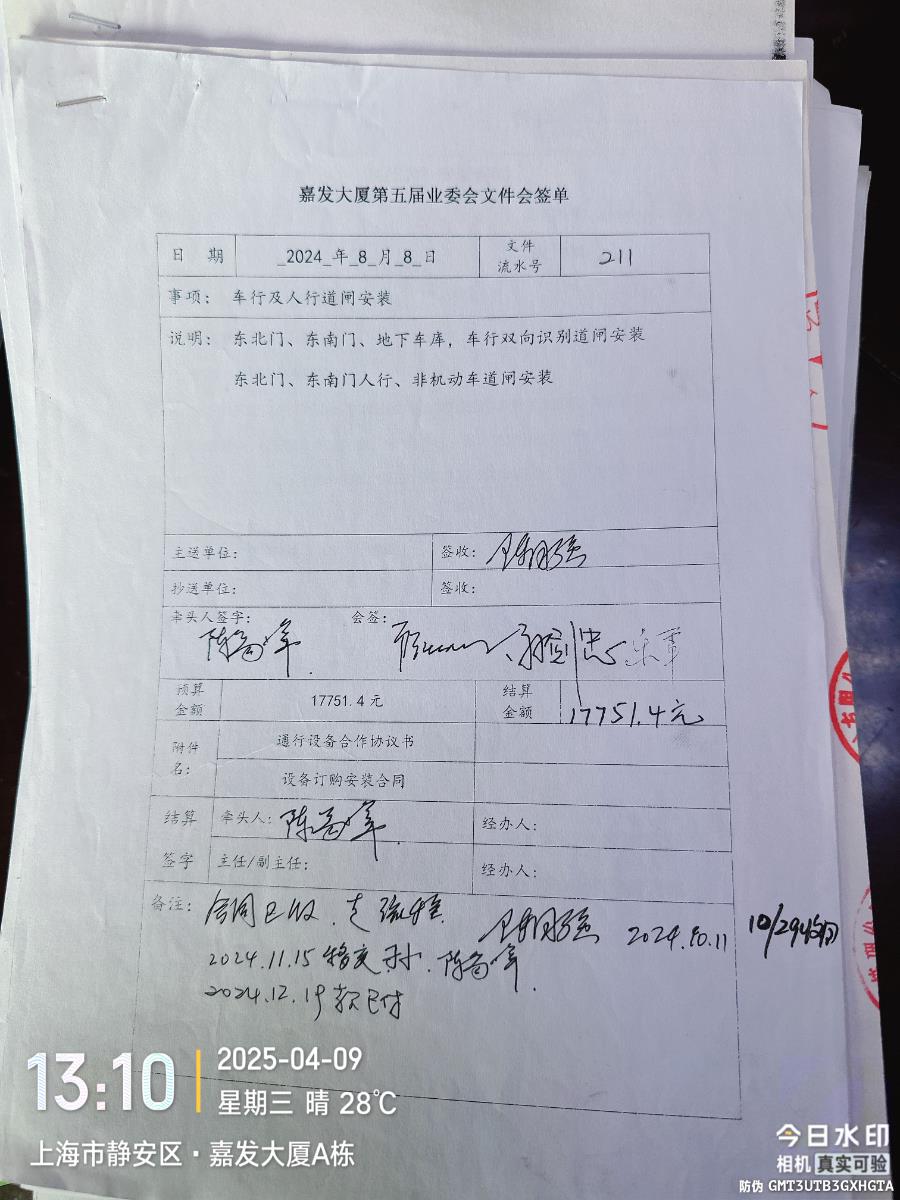 嘉发大厦第五届业委会文件会签单
日 期 _2024_年_8_月_8_日 文件流水号 211
事项: 车行及人行道闸安装
说明: 东北门、东南门、地下车库,车行双向识别道闸安装
东北门、东南门人行、非机动车道闸安装
主送单位: 签收:
抄送单位: 签收:
牵头人签字: 会签:
预算金额 17751.4元 结算金额 17751.4元
附件名: 通行设备合作协议书
设备订购安装合同
结算签字 牵头人: 经办人:
主任/副主任: 经办人:
备注: 合同已收 走流程 2024.10.11 10/29收回
2024.11.15 移交
2024.12.19 款已付
13:10
2025-04-09
星期三 晴 28℃
上海市静安区·嘉发大厦A栋
今日水印
相机 真实可验
防伪 GMT3UTB3GXHGTA